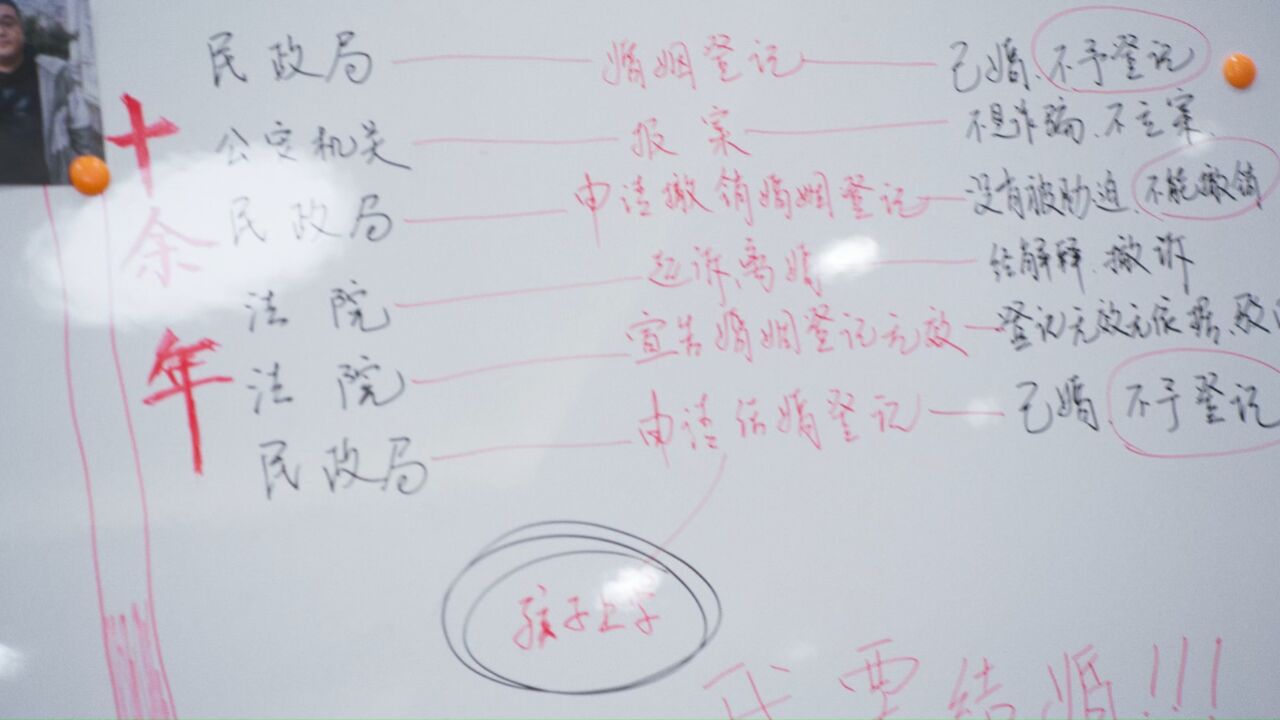 十余年
民政局 婚姻登记 已婚、不予登记
公安机关 报案 不是诈骗、不立案
民政局 申请撤销婚姻登记 没有被胁迫、不能撤销
法院 起诉离婚 经解释、撤诉
法院 宣告婚姻登记无效 登记无效无依据、驳
民政局 申请结婚登记 已婚、不予登记
孩子上学
我要结婚!!!